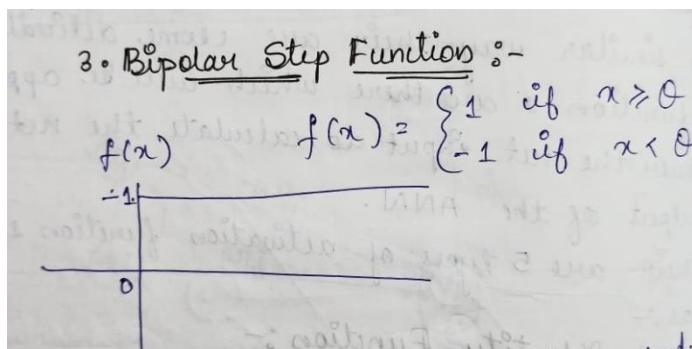 3. Bipolar Step Function :-
f(x) = { 1 if x ≥ θ
{ -1 if x < θ
f(x)
-1
0